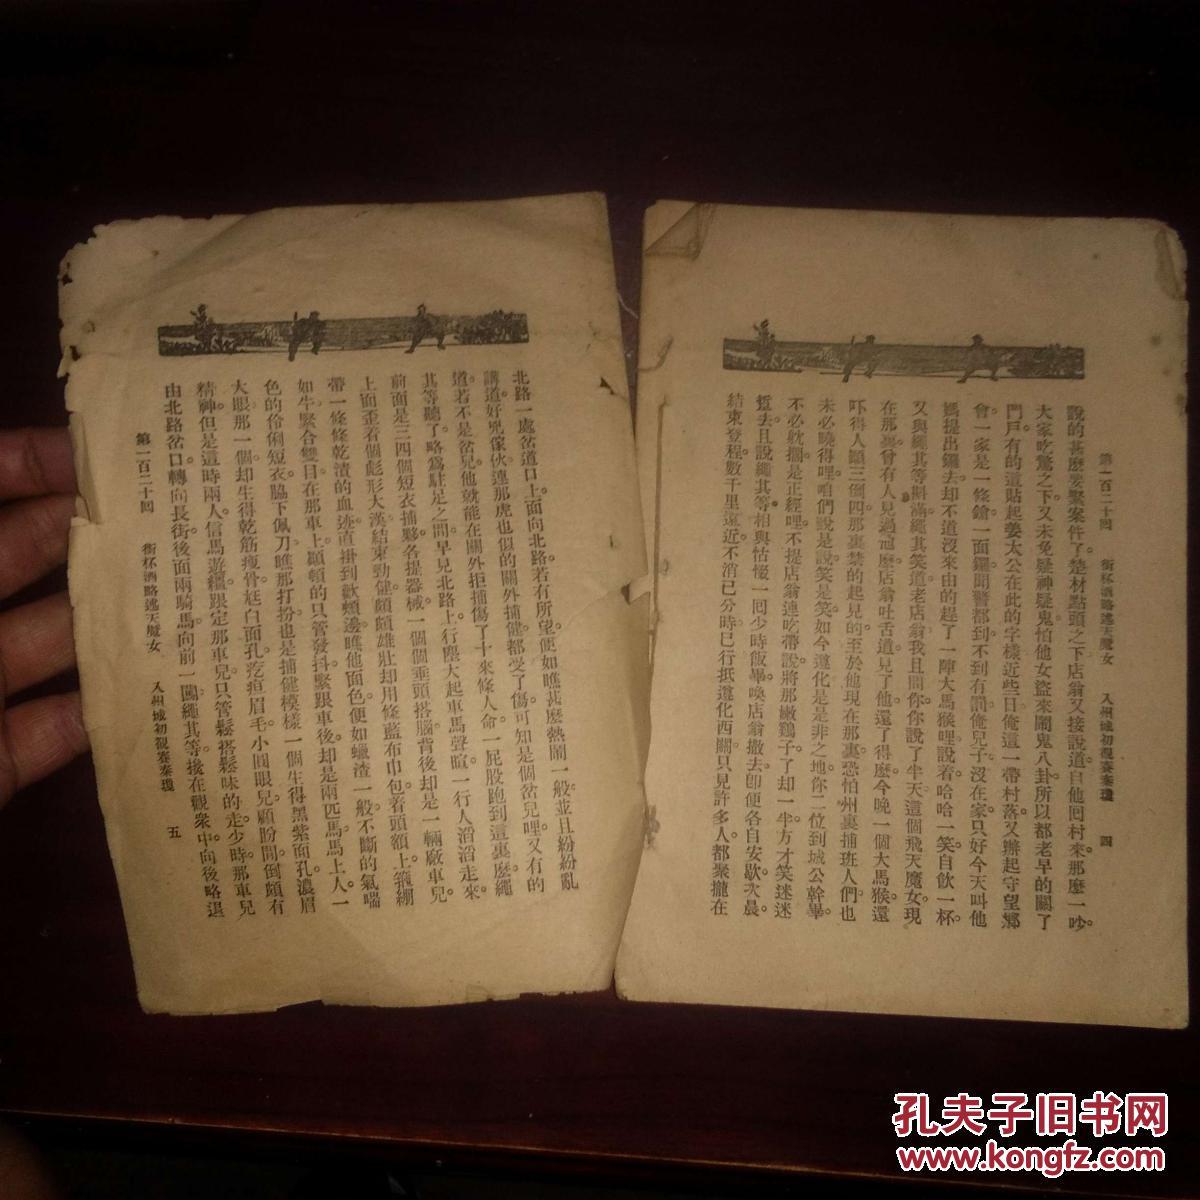 第一百二十回　銜杯酒略述天魔女　入州城初觀賽秦瓊　四
說的甚麼要緊案件了。楚材點頭之下。店翁又接說道。自他回村來那麼一吵。
大家吃驚之下。又未免疑神疑鬼。怕他女盜來鬧鬼八卦。所以都老早的關了
門戶。有的還貼起姜太公在此的字樣。近些日俺這一帶村落。又辦起守望鄉
會。一家是一條鎗。一面鑼。聞警都到。不到有罰。俺兒子沒在家。只好今天叫他
媽提出鑼去。却不道沒來由的趕了一陣大馬猴哩。說着哈哈一笑。自飲一杯。
又與繩其等斟滿。繩其笑道。老店翁。我且問你。你說了半天。這個飛天魔女。現
在那。與曾有人見過他麼。店翁吐舌道。見了他還了得麼。今晚一個大馬猴。還
吓得人顚三倒四。那裏禁的起見的。至於他現在那裏。恐怕州裏捕班人們。也
未必曉得哩。咱們說是說。笑是笑。如今遵化是是非之地。你二位到城公幹畢。
不必躭擱。是正經哩。不提店翁連吃帶說。將那嫩鷄子了却一半。方才笑迷迷
踅去。且說繩其等相與怙惙一回。少時飯畢。喚店翁撤去。即便各自安歇。次晨
結束登程。數千里遠近。不消巳分時。已行抵遵化西關。只見許多人都聚攏在
北路一處岔道口上。面向北路。若有所望。便如瞧甚麼熱鬧一般。並且紛紛亂
講道。好兇傢伙。連那虎也似的關外捕健都受了傷。可知是個岔兒哩。又有的
道。若不是岔兒。他就能在關外拒捕傷了十來條人命。一屁股跑到這裏麼。繩
其等聽了。略爲駐足之間。早見北路上行塵大起。車馬聲喧。一行人滔滔走來。
前面是三四個短衣捕夥。各提器械。一個個垂頭搭腦。背後却是一輛廠車兒。
上面歪着個彪形大漢。結束勁健。頗頗雄壯。却用條藍布巾。包着頭額。上箍綳
帶。一條條乾漬的血迹。直掛到歡頰邊。瞧他面色。便如蠟渣一般。不斷的氣喘
如牛。緊合雙目。在那車上顚頓的只管發抖。緊跟車後。却是兩匹馬。馬上人一
色的伶俐短衣。脇下佩刀。瞧那打扮。也是捕健模樣。一個生得黑紫面孔。濃眉
大眼。那一個却生得乾筋瘦骨。尪白面孔。疙疸眉毛。小圓眼兒。顧盼間倒頗有
精神。但是這時兩人信馬遊韁。跟定那車兒。只管鬆搭鬆味的走。少時那車兒
由北路岔口。轉向長街。後面兩騎馬。向前一闖。繩其等擁在觀衆中。向後略退
第一百二十回　銜杯酒略述天魔女　入州城初觀賽秦瓊　五
孔夫子旧书网
www.kongfz.com